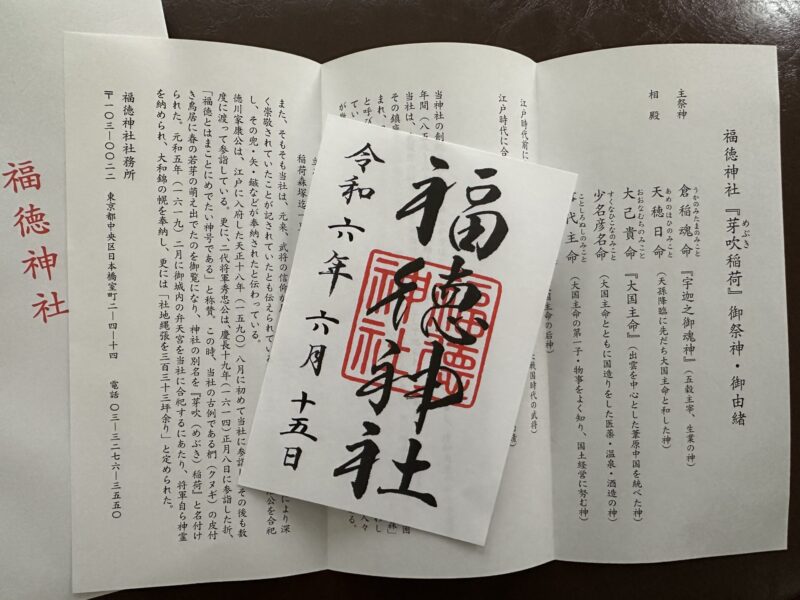 福徳神社『芽吹稲荷』御祭神・御由緒
めぶき
主祭神
うかのみたまのみこと
倉稲魂命
『宇迦之御魂神』(五穀主宰、生業の神)
相殿
あめのほひのみこと
天穂日命
(天孫降臨に先だち大国主命と和した神)
おおなむちのみこと
大己貴命
『大国主命』(出雲を中心とした葦原中国を統べた神)
すくなひこなのみこと
少名彦名命
(大国主命とともに国造りをした医薬・温泉・酒造の神)
ことしろぬしのみこと
事代主命
(大国主命の第一子・物事をよく知り、国土経営に努む神)
大国主命の后神)
戦国時代の武将)
江戸時代前に
江戸時代に合
当神社の創
年間(八五
当社は、
その鎮座
まれ、
と呼び
稲荷森塚迄一
また、そもそも当社は、元来、武将の信仰が
く崇敬されていたことが記されていたとも伝えられてい
し、その兜・矢・鏃などが奉納されたと伝わっている。
により深
公を合祀
徳川家康公は、江戸に入府した天正十八年(一五九〇)八月に初めて当社に参詣し
その後も数
度に渡って参詣している。更に、二代将軍秀忠公は、慶長十九年(一六一四)正月八日に参詣した折、
「福徳とはまことにめでたい神号である」と称賛、この時、当社の古例である椚(クヌギ)の皮付
き鳥居に春の若芽の萌え出でたのを御覧になり、神社の別名を『芽吹(めぶき)稲荷』と名付け
られた。元和五年(一六一九)二月に御城内の弁天宮を当社に合祀するにあたり、将軍自ら神霊
を納められ、大和錦の幌を奉納し、更には「社地縄張を三百三十三坪余り」と定められた。
福徳神社社務所
〒一〇三-〇〇二二 東京都中央区日本橋室町二-四-十四 電話〇三-三二七六-三五五〇
福徳神社
福徳神社
令和六年六月十五日
福徳神社